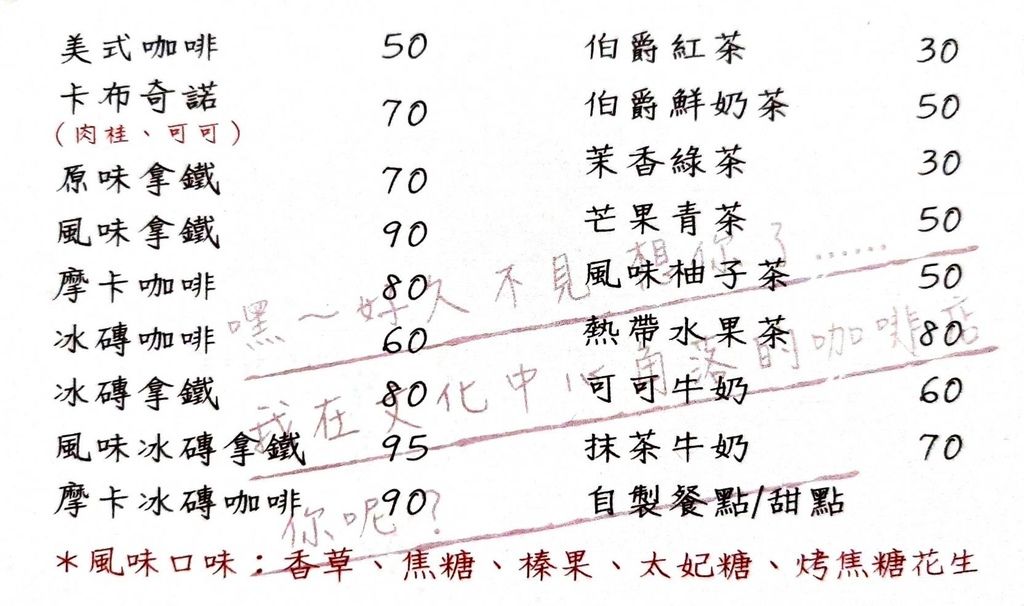 美式咖啡 50
卡布奇諾 70
(肉桂、可可)
原味拿鐵 70
風味拿鐵 90
摩卡咖啡 80
冰磚咖啡 60
冰磚拿鐵 80
風味冰磚拿鐵 95
摩卡冰磚咖啡 90
伯爵紅茶 30
伯爵鮮奶茶 50
茉香綠茶 30
芒果青茶 50
風味柚子茶 50
熱帶水果茶 80
可可牛奶 60
抹茶牛奶 70
自製餐點/甜點
*風味口味:香草、焦糖、榛果、太妃糖、烤焦糖花生
嘿~好久不見 想你了......
我在文化中心角落的咖啡店
你呢?